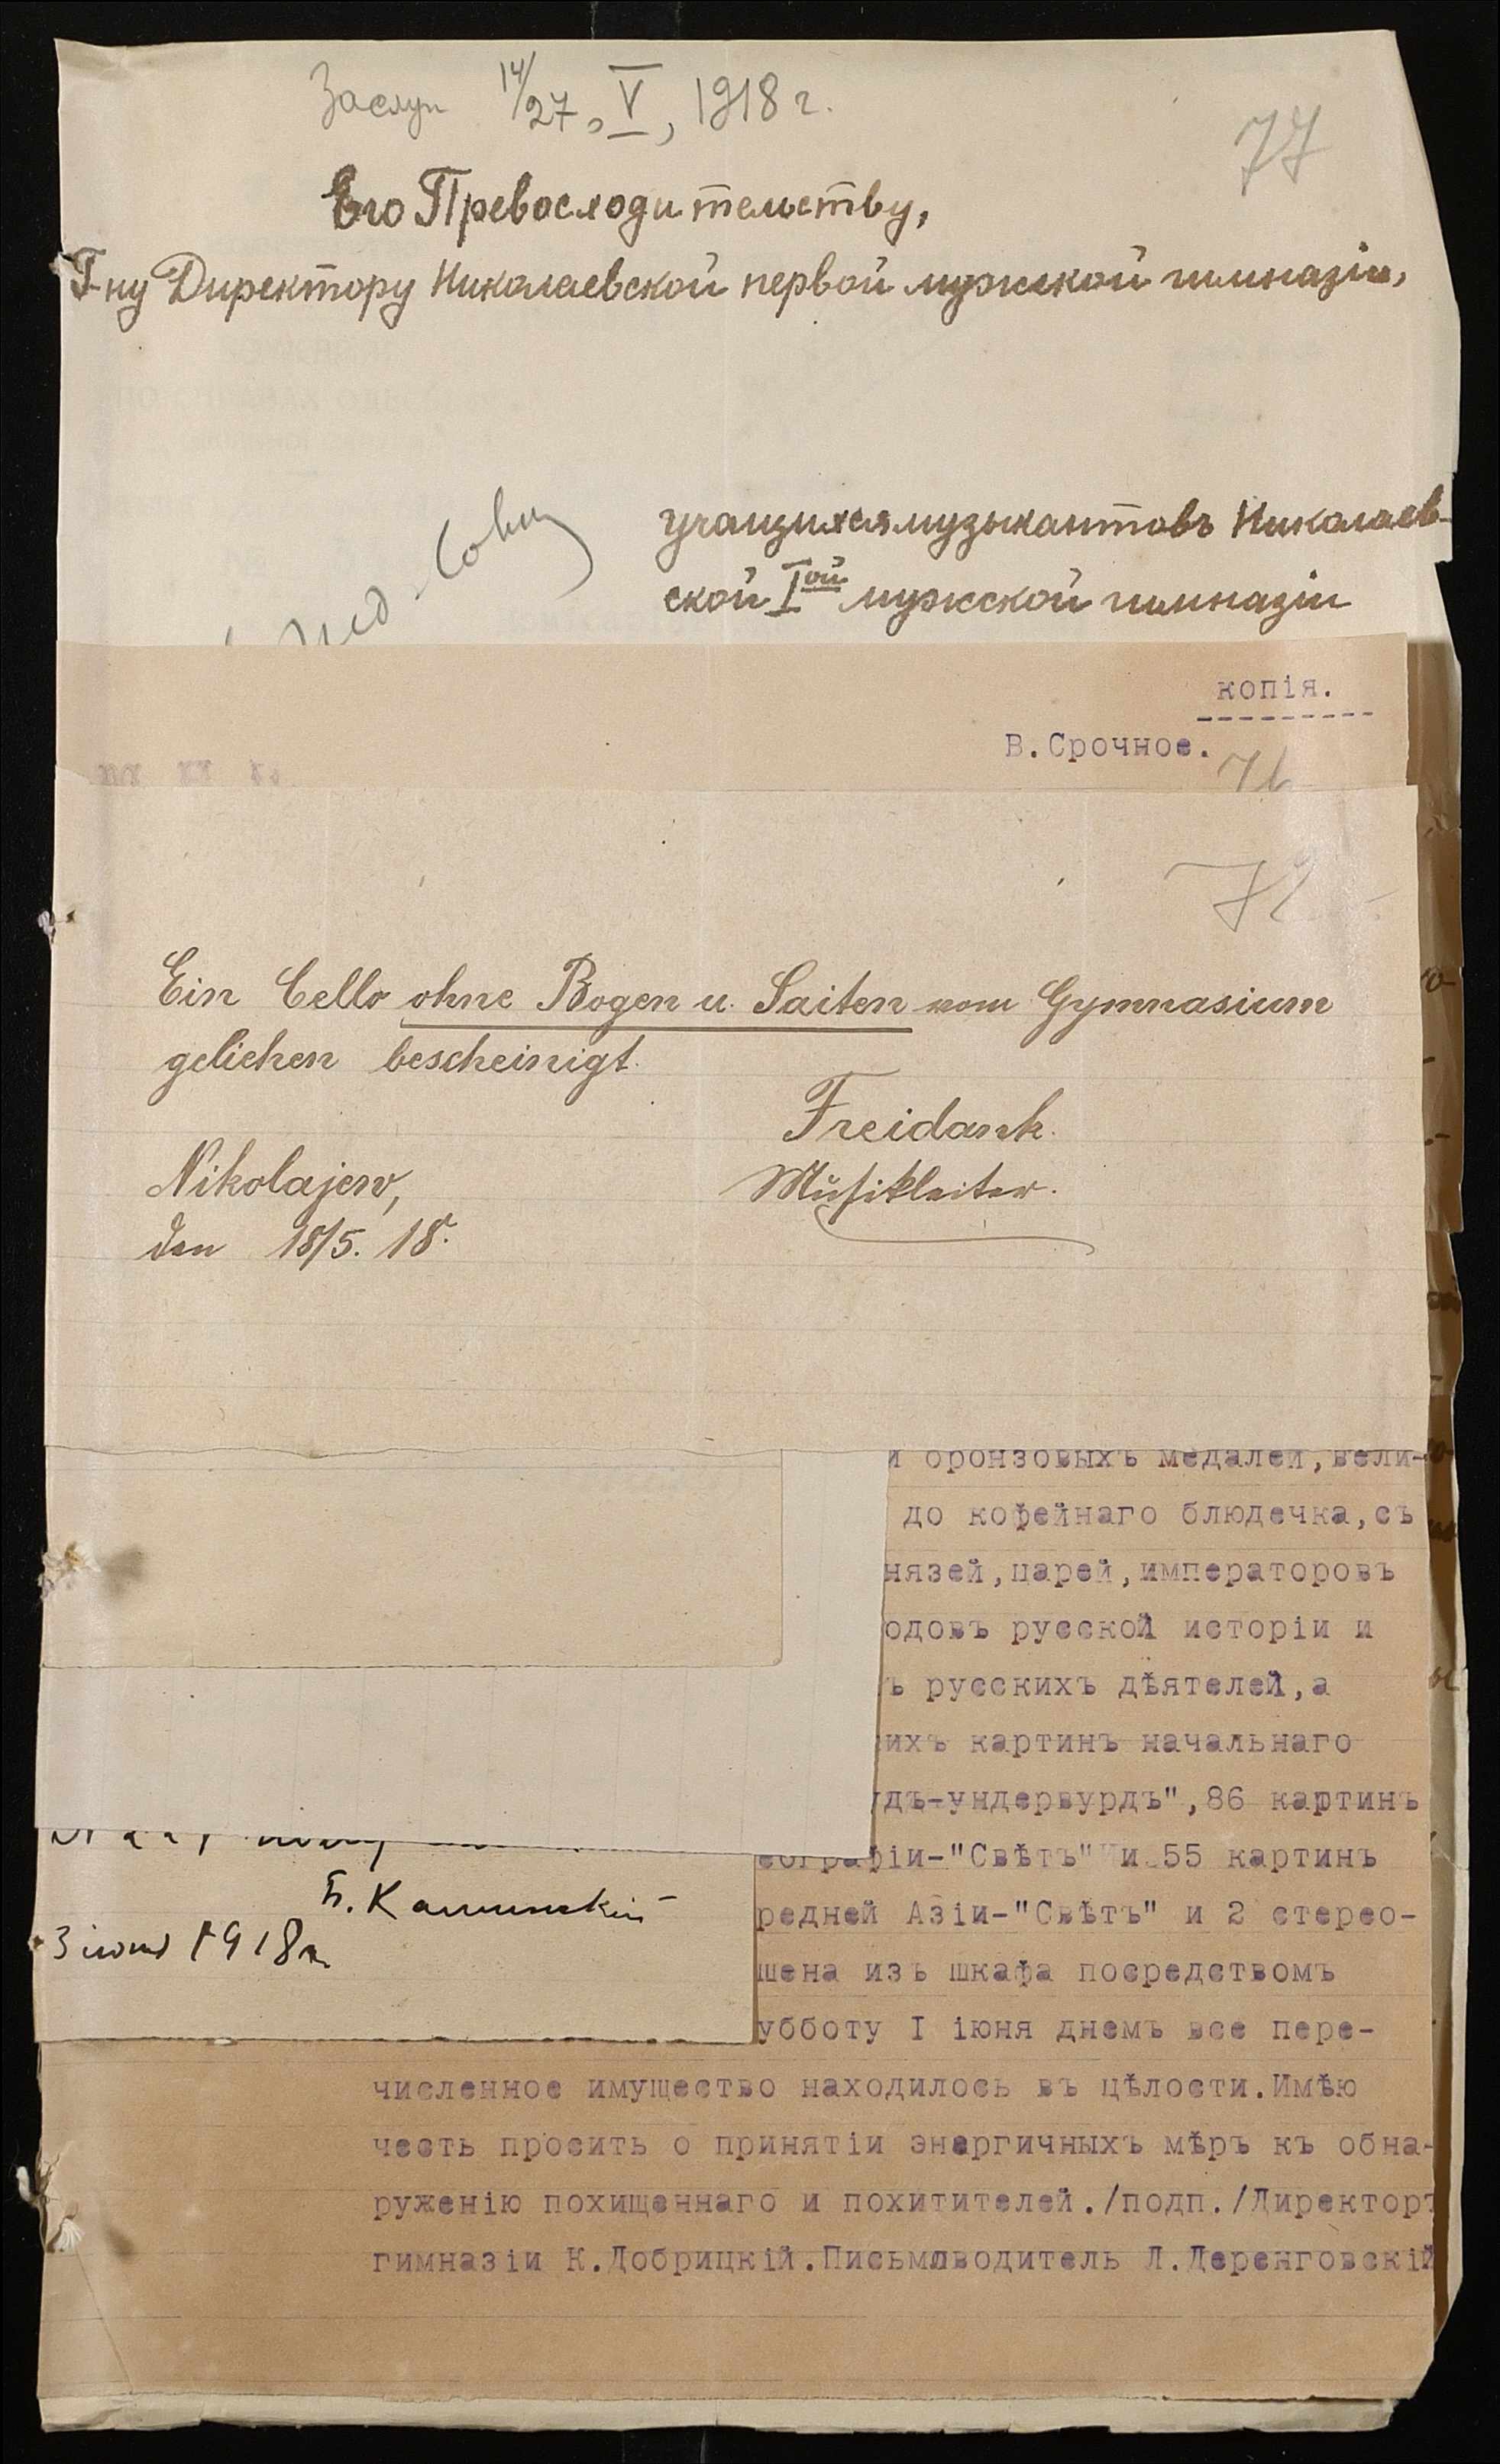 Заслуш 14/27, V, 1918 г.
77
Его Превосходительству,
Г-ну Директору Николаевской первой мужской гимназіи,
учащихся музыкантовъ Николаев-
ской Iой мужской гимназіи
копія.
В.Срочное.
76
72
Ein Cello ohne Bogen u. Saiten vom Gymnasium
geliehen bescheinigt.
Freidank.
Musikleiter.
Nikolajew,
den 18/5. 18.
и бронзовыхъ медалей, вели-
до кофейнаго блюдечка, съ
нязей, царей, императоровъ
одовъ русской исторіи и
ъ русскихъ дѣятелей, а
ихъ картинъ начальнаго
дъ-ундервурдъ", 86 картинъ
еографіи-"Свѣтъ" и 55 картинъ
редней Азіи-"Свѣтъ" и 2 стерео-
шена изъ шкафа посредствомъ
убботу I іюня днемъ все пере-
Б. Каминскій
3 іюня 1918 г.
численное имущество находилось въ цѣлости. Имѣю
честь просить о принятіи энергичныхъ мѣръ къ обна-
руженію похищеннаго и похитителей. /подп./ Директоръ
гимназіи К. Добрицкій. Письмоводитель Л. Деренговскій